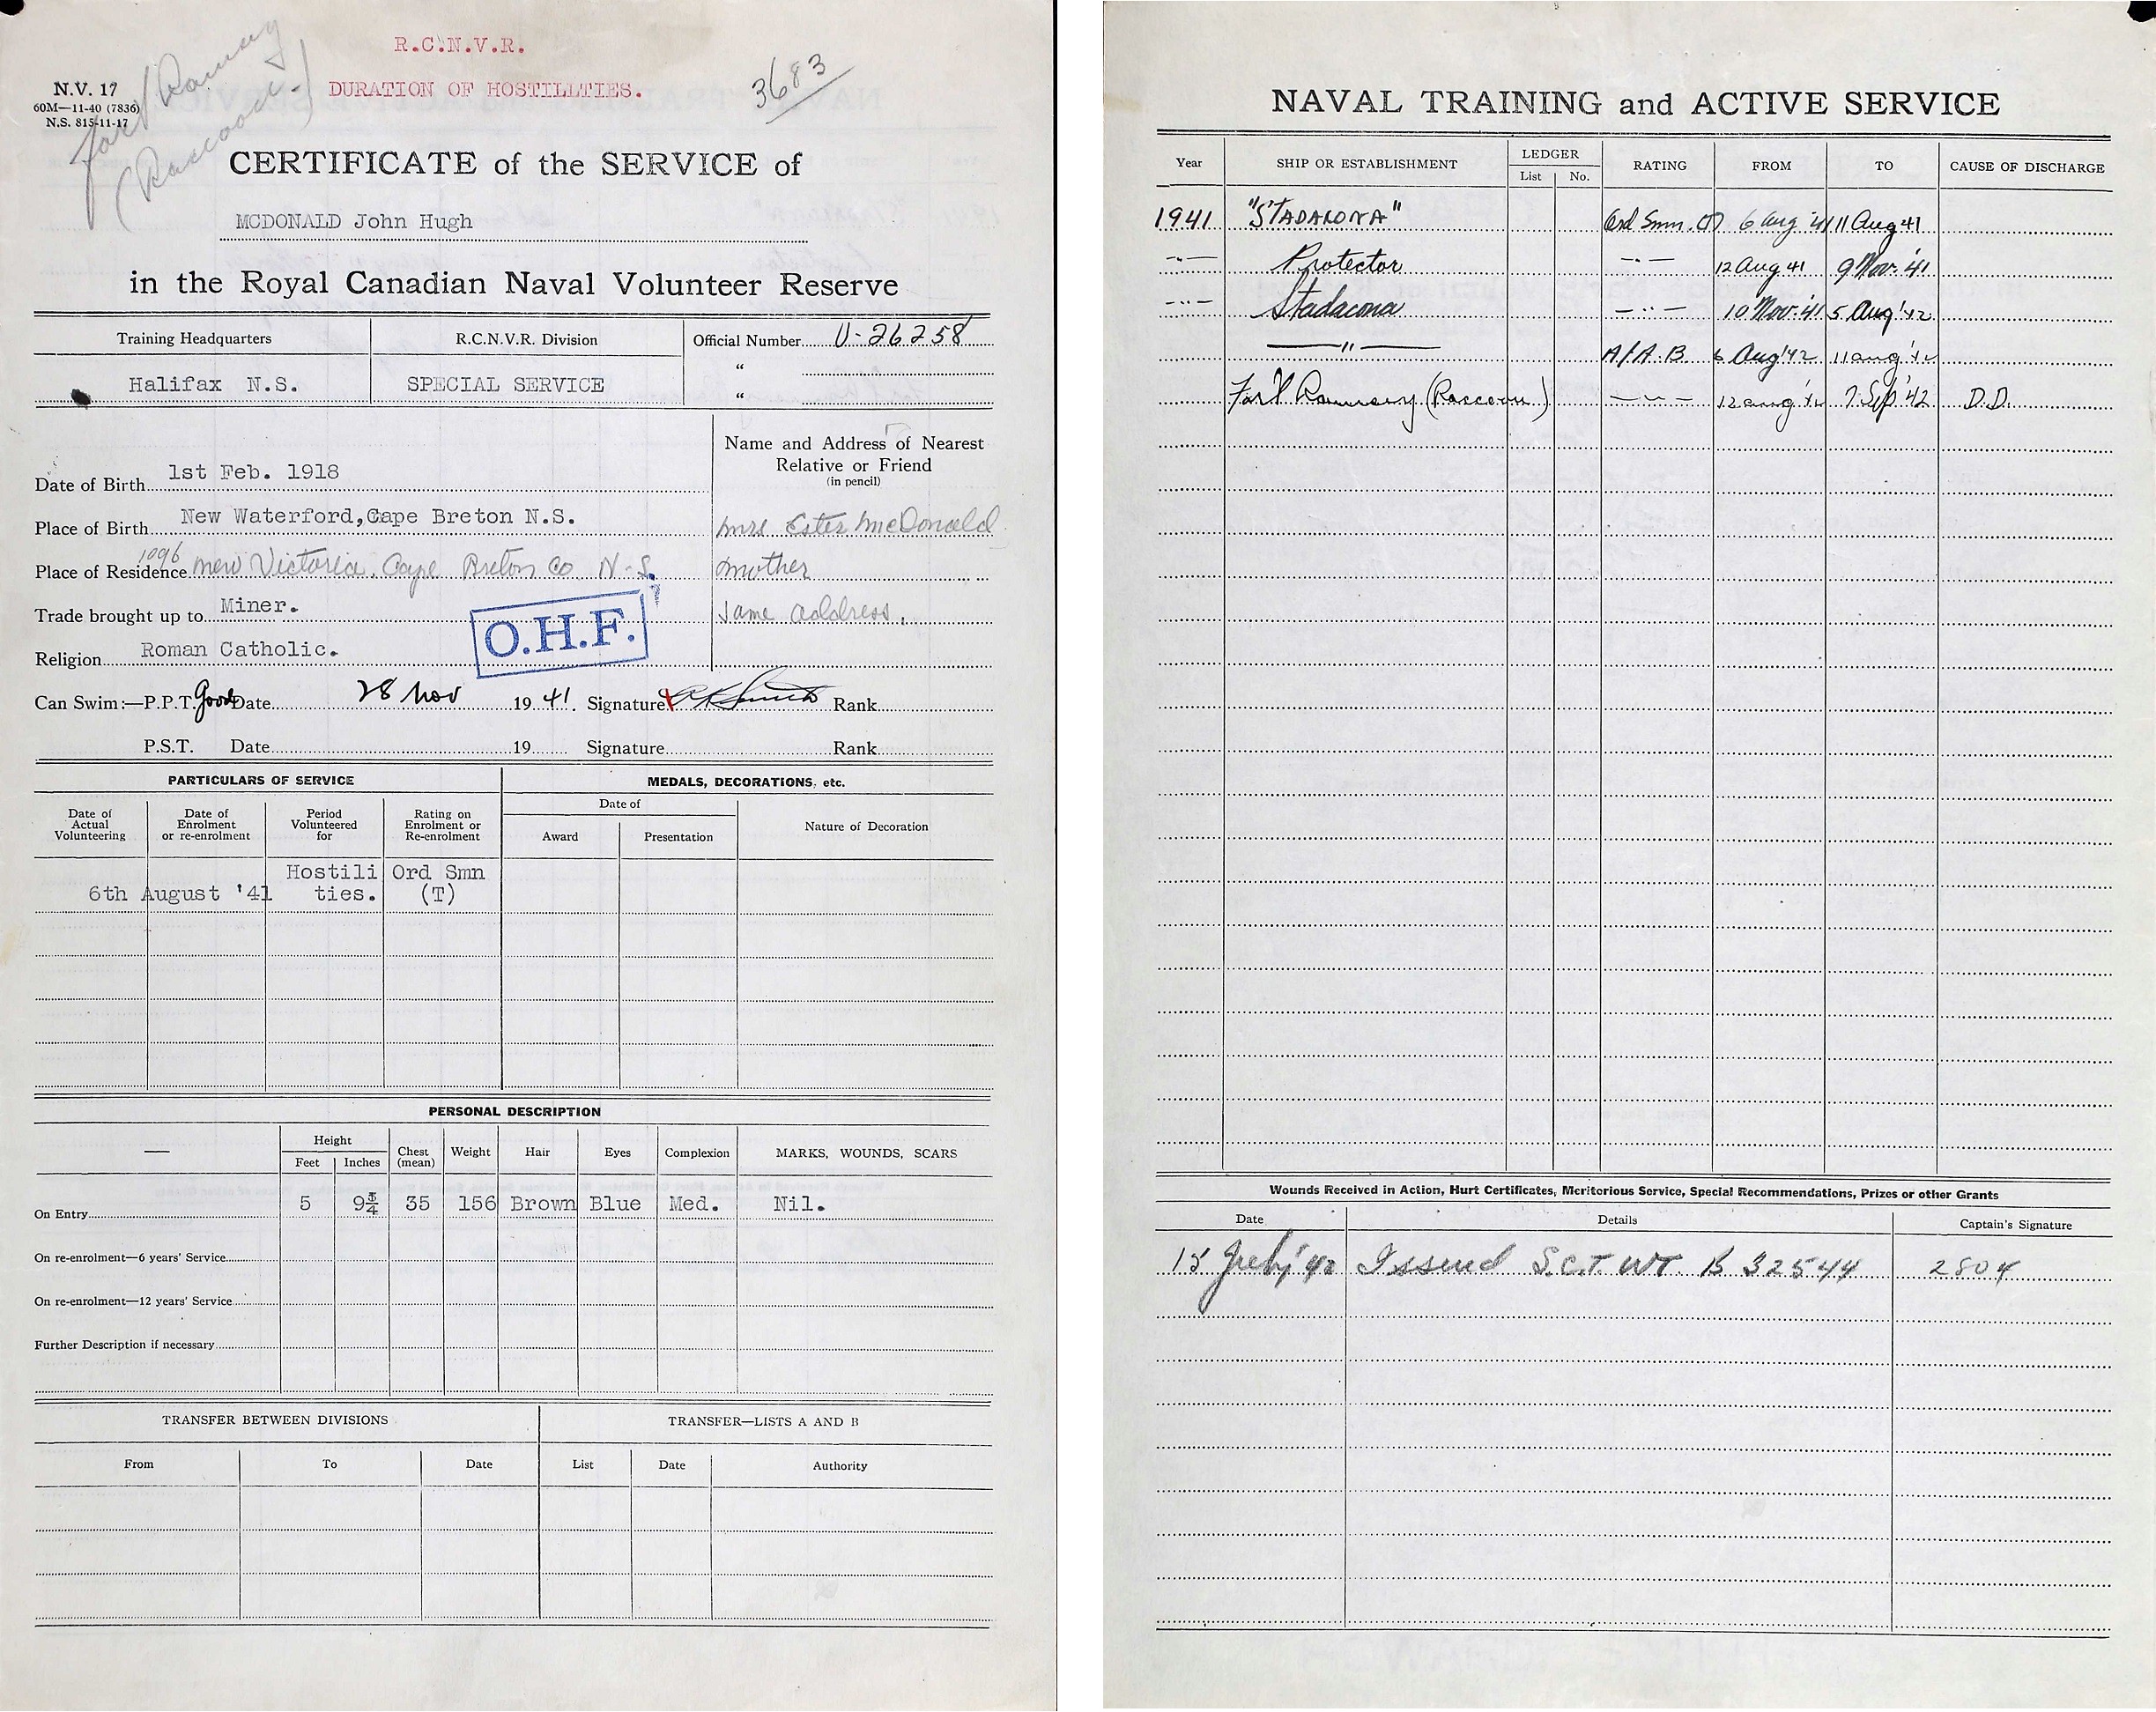 R.C.N.V.R.
DURATION OF HOSTILITIES.
3683
Fort Ramsay
(Raccoon)
N.V. 17
60M—11-40 (7836)
N.S. 815-11-17
CERTIFICATE of the SERVICE of
MCDONALD John Hugh
in the Royal Canadian Naval Volunteer Reserve
Training Headquarters R.C.N.V.R. Division Official Number V-26258
Halifax N.S. SPECIAL SERVICE "
"
Name and Address of Nearest
Relative or Friend
(in pencil)
Date of Birth 1st Feb. 1918
Place of Birth New Waterford, Cape Breton N.S. Mrs Ester McDonald
1096
Place of Residence New Victoria. Cape Breton Co N-S. mother
Trade brought up to Miner. same address.
O.H.F.
Religion Roman Catholic.
Can Swim:—P.P.T. Good Date 28 Nov 1941. Signature Smith Rank
P.S.T. Date 19 Signature Rank
PARTICULARS OF SERVICE MEDALS, DECORATIONS, etc.
Date of Actual Volunteering Date of Enrolment or re-enrolment Period Volunteered for Rating on Enrolment or Re-enrolment Date of Award Presentation Nature of Decoration
Hostili Ord Smn
6th August '41 ties. (T)
PERSONAL DESCRIPTION
— Height Feet Inches Chest (mean) Weight Hair Eyes Complexion MARKS, WOUNDS, SCARS
On Entry 5 9¾ 35 156 Brown Blue Med. Nil.
On re-enrolment—6 years' Service
On re-enrolment—12 years' Service
Further Description if necessary
TRANSFER BETWEEN DIVISIONS TRANSFER—LISTS A AND B
From To Date List Date Authority
NAVAL TRAINING and ACTIVE SERVICE
Year SHIP OR ESTABLISHMENT LEDGER List No. RATING FROM TO CAUSE OF DISCHARGE
1941 "STADACONA" Ord Smn. (T) 6 Aug '41 11 Aug 41
-"- Protector -"- 12 Aug 41 9 Nov. '41
-"- Stadacona -"- 10 Nov. 41 5 Aug '42
-"- A/A.B 6 Aug '42 11 aug '42
Fort Ramsay (Raccoon) -"- 12 aug '42 7 Sep '42 D.D.
Wounds Received in Action, Hurt Certificates, Meritorious Service, Special Recommendations, Prizes or other Grants
Date Details Captain's Signature
15 July '42 Issued S.C.T. WT. B 32544 2804